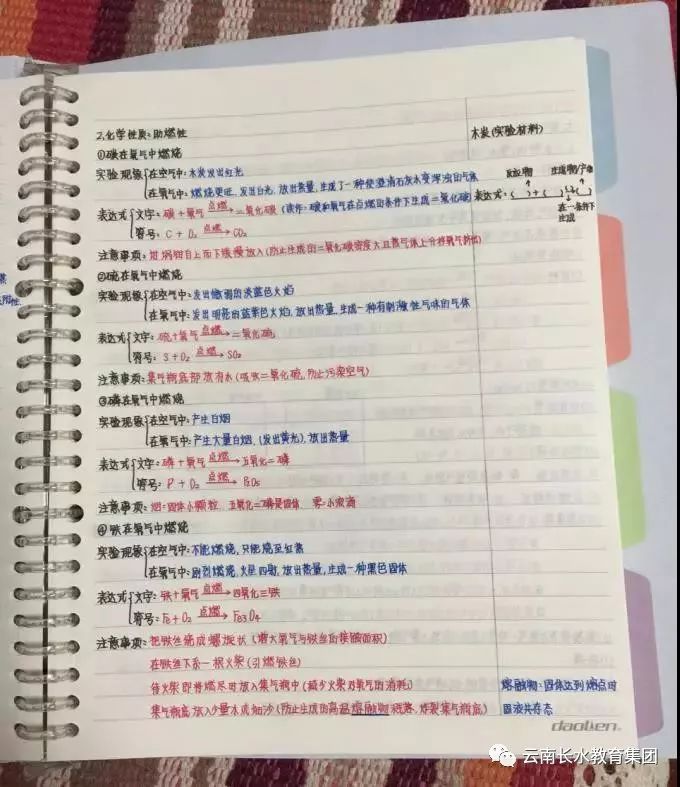 2.化学性质:助燃性
木炭(实验材料)
①碳在氧气中燃烧
实验现象 在空气中:木炭发出红光
在氧气中:燃烧更旺,发出白光,放出热量,生成了一种使澄清石灰水变浑浊的气体
反应物 生成物/产物
表达式:( )+( )→( )
在一条件下
生成
表达式 文字:碳+氧气 点燃→ 二氧化碳 (读作:碳和氧气在点燃的条件下生成二氧化碳)
符号:C + O₂ 点燃→ CO₂
注意事项:坩埚钳自上而下缓慢放入(防止生成的二氧化碳密度大且
②硫在氧气中燃烧
实验现象 在空气中:发出微弱的淡蓝色火焰
在氧气中:发出明亮的蓝紫色火焰,放出热量,生成一种有刺激性气味的气体
表达式 文字:硫+氧气 点燃→ 二氧化硫
符号:S+O₂ 点燃→ SO₂
注意事项:集气瓶底部放有水(吸收二氧化硫,防止污染空气)
③磷在氧气中燃烧
实验现象 在空气中:产生白烟
在氧气中:产生大量白烟,(发出黄光),放出热量
表达式 文字:磷+氧气 点燃→ 五氧化二磷
符号:P + O₂ 点燃→ P₂O₅
注意事项:烟=固体小颗粒 五氧化二磷是固体 雾=小液滴
④铁在氧气中燃烧
实验现象 在空气中:不能燃烧,只能烧至红热
在氧气中:剧烈燃烧,火星四射,放出热量,生成一种黑色固体
表达式 文字:铁+氧气 点燃→ 四氧化三铁
符号:Fe+O₂ 点燃→ Fe₃O₄
注意事项:把铁丝绕成螺旋状(增大氧气与铁丝的接触面积)
在铁丝下系一根火柴(引燃铁丝)
待火柴即将燃尽时放入集气瓶中(减少火柴对氧气的消耗)
熔融物:固体达到熔点时
集气瓶底放入少量水或细沙(防止生成的高温熔融物溅落,炸裂集气瓶底)
固液共存态
daolien
云南长水教育集团